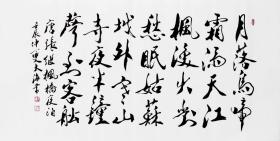 月落烏啼
霜滿天江
楓漁火對
愁眠姑蘇
城外寒山
寺夜半鐘
聲到客船
唐張繼楓橋夜泊